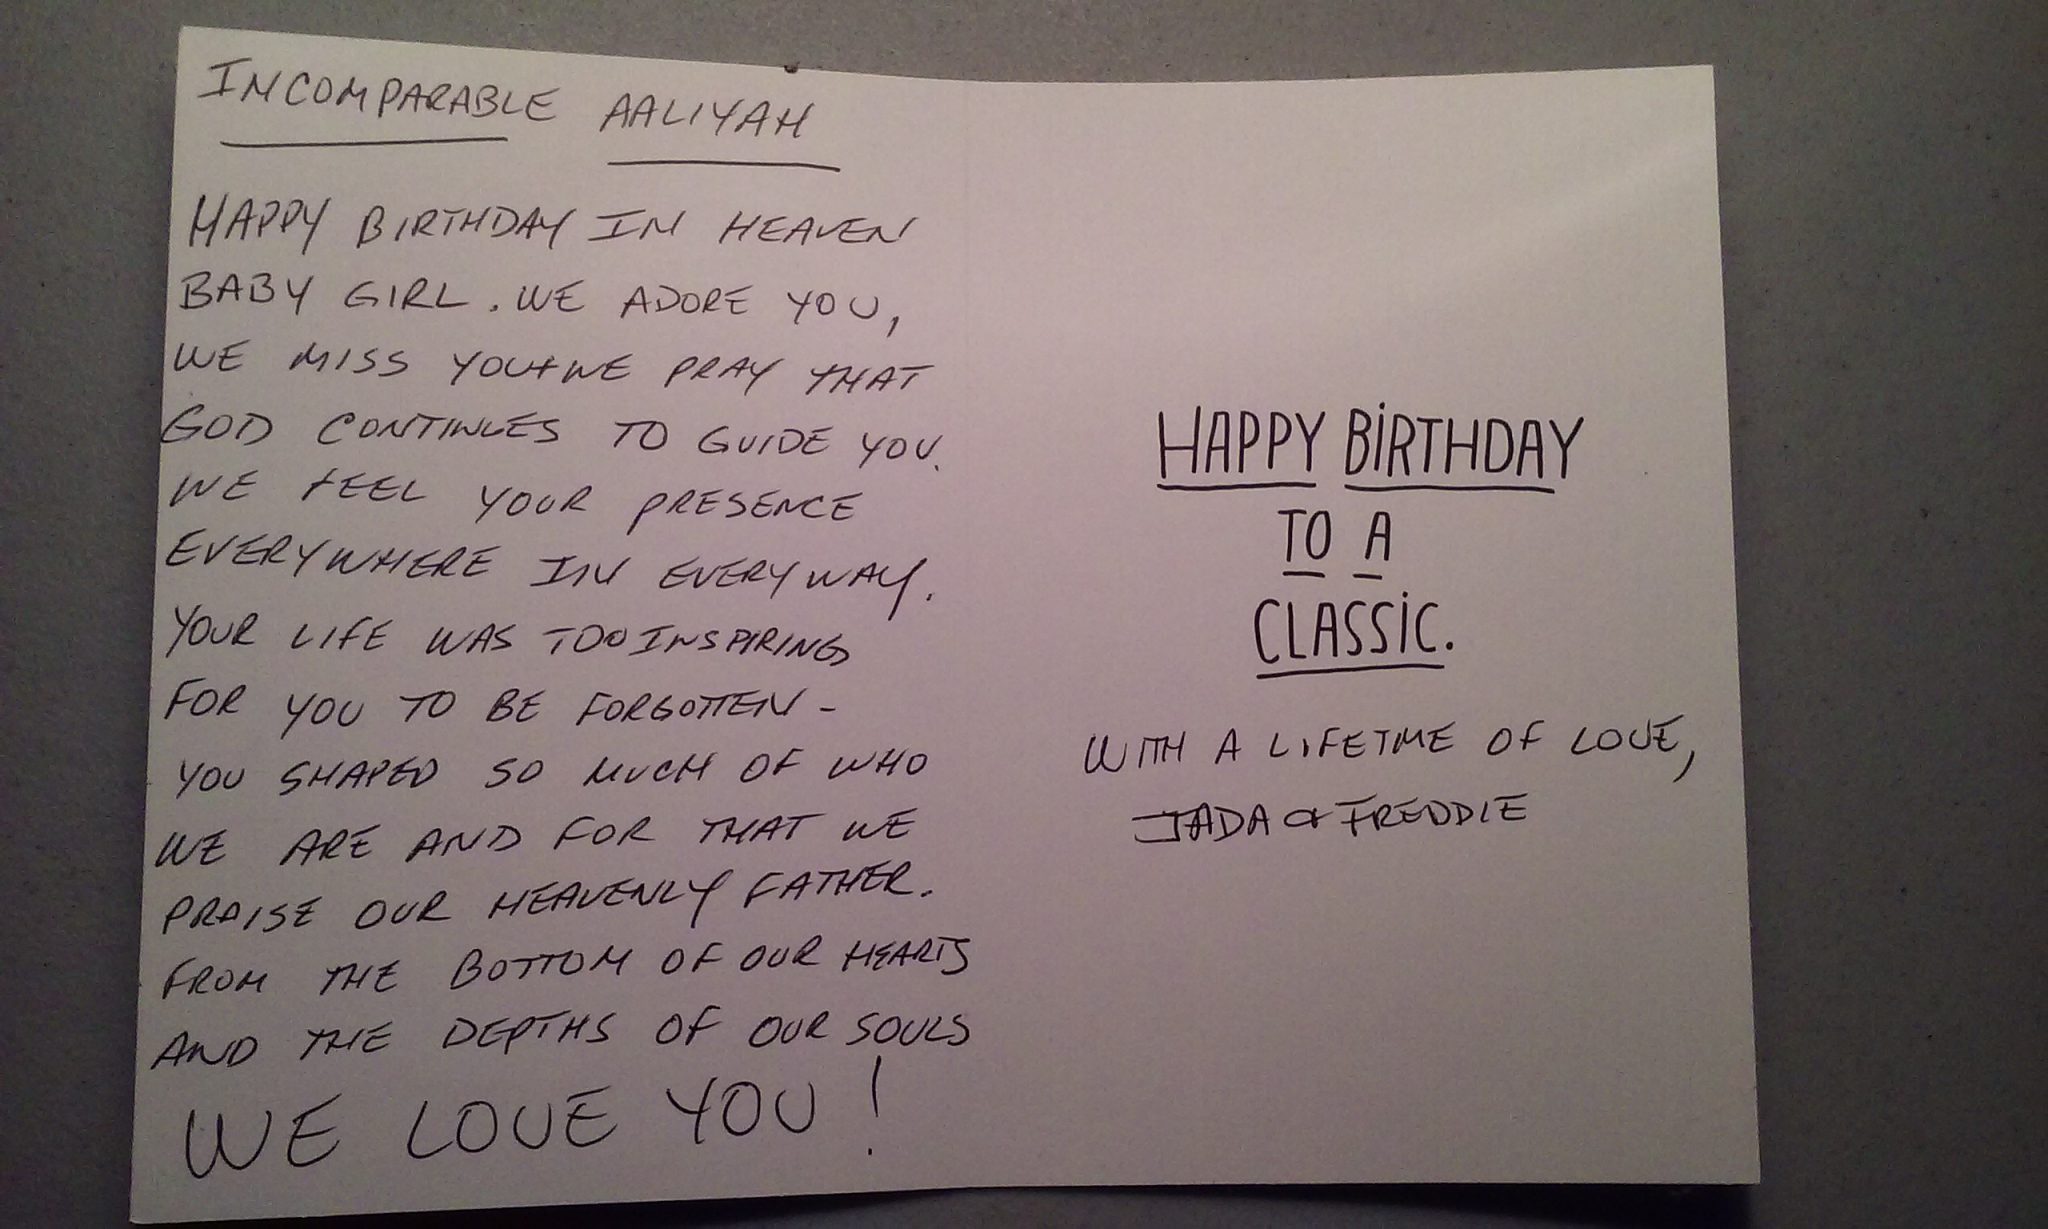 INCOMPARABLE AALIYAH
HAPPY BIRTHDAY IN HEAVEN
BABY GIRL. WE ADORE YOU,
WE MISS YOU + WE PRAY THAT
GOD CONTINUES TO GUIDE YOU.
WE FEEL YOUR PRESENCE
EVERYWHERE IN EVERY WAY.
YOUR LIFE WAS TOO INSPIRING
FOR YOU TO BE FORGOTTEN -
YOU SHAPED SO MUCH OF WHO
WE ARE AND FOR THAT WE
PRAISE OUR HEAVENLY FATHER.
FROM THE BOTTOM OF OUR HEARTS
AND THE DEPTHS OF OUR SOULS
WE LOVE YOU!
HAPPY BIRTHDAY
TO A
CLASSIC.
WITH A LIFETIME OF LOVE,
JADA & FREDDIE